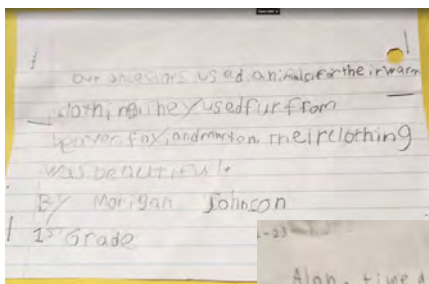 our ancestors used animals for their warm
clothing. They used fur from
beaver, fox, and marton. Their clothing
was beautiful.
By Morigan Johnson
1st Grade
-23
Along time a